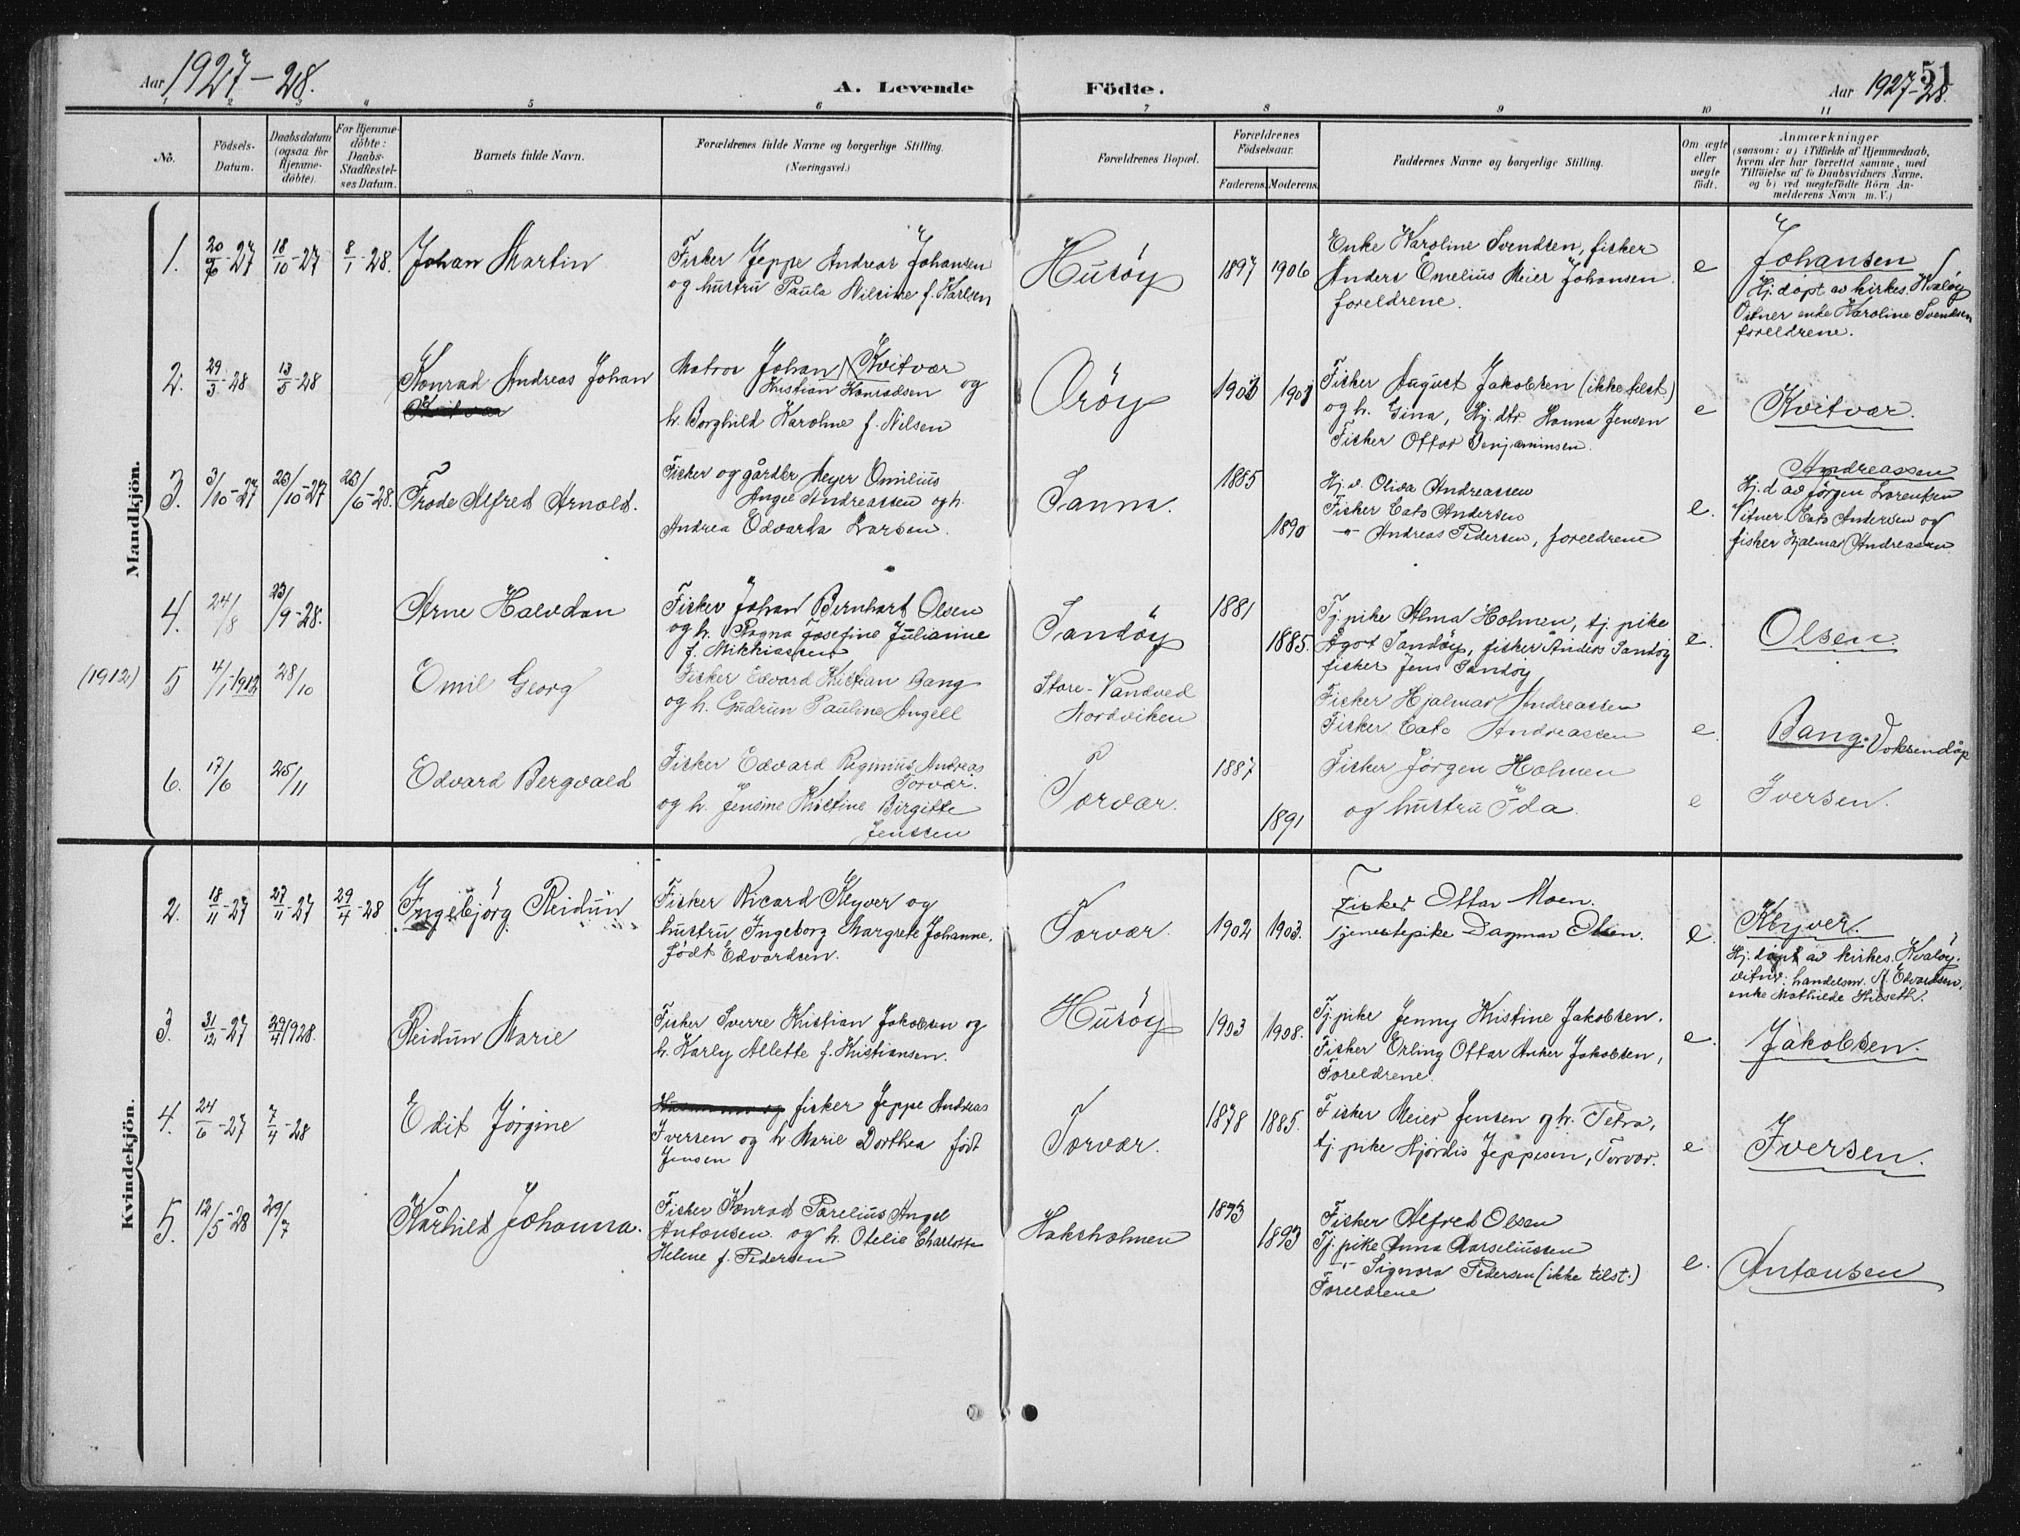 Aar 1927-28.
A. Levende
Födte.
51
Aar 1927-28.
1 2 3 4 5 6 7 8 9 10 11
No.
Födsels-
Datum.
Daabsdatum
(ogsaa for
Hjemme-
döbte).
For Hjemme-
döbte:
Daabs-
Stadfæstel-
ses Datum.
Barnets fulde Navn.
Forældrenes fulde Navne og borgerlige Stilling.
(Næringsvei.)
Forældrenes Bopæl.
Forældrenes
Födselsaar.
Faderens. Moderens.
Faddernes Navne og borgerlige Stilling.
Om ægte
eller
uægte
födt.
Anmærkninger
(saasom: a) i Tilfælde af Hjemmedaab,
hvem der har forrettet samme, med
Tilföielse af to Daabsvidners Navne,
og b) ved uægtefödte Börn An-
melderens Navn m. V.)
Mandkjön.
1. 20/6-27 18/10-27 8/1-28. Johan Martin
Fisker Jeppe Andreas Johansen
og hustru Paula Nilsine f. Karlsen
Husöy
1897 1906
Enke Karoline Svendsen, fisker
Anders Emelius Meier Johansen
foreldrene.
e
Johansen
Hj. döpt av kirkes. Kvaløy
Vitner enke Karoline Svendsen
foreldrene.
2. 29/3-28 13/5-28
Konrad Andreas Johan
Matros Johan Kvitvær
Kristian Konradsen og
h. Borghild Karoline f. Nilsen
Orøy
1903 1901
Fisker August Jakobsen (ikke tilst.)
og h. Gina, Hj. dtr. Hanna Jensen
Fisker Ottar Benjaminsen.
e
Kvitvær.
3. 3/10-27 23/10-27 23/6-28.
Frode Alfred Arnold.
Fisker og gårdbr. Meyer Emilius
Angel Andreassen og h.
Andrea Edvarda Larsen.
Sanna.
1885
1890
Hj. v. Oliva Andreassen
Fisker Eato Andersen
-"- Andreas Pedersen, foreldrene
e.
Andreassen
Hj. d av Jørgen Lorentsen
Vitner Eato Andersen og
fisker Hjalmar Andreassen
4. 24/8 23/9-28.
Arne Halvdan
Fisker Johan Bernhart Olsen
og h. Ragna Josefine Julianne
f. Mikkiassen
Sandöy
1881
1885.
Tj. pike Alma Holmen, tj. pike
Agot Sandöy, fisker Anders Sandöy
fisker Jens Sandöy
e.
Olsen
(1912) 5 4/1-1912 28/10
Emil Georg
Fisker Edvard Kristian Bang
og h. Gudrun Pauline Angell
Store-Vandved
Nordviken
Fisker Hjalmar Andreassen
Fisker Eato Andreassen
e.
Bang. Voksendåp
6. 17/6 25/11
Edvard Bergvald
Fisker Edvard Regimus Andreas
Torvær.
og h. Jensine Kristine Birgitte
Jenssen
Torvær.
1887
1891
Fisker Jörgen Holmen
og hustru Ida.
e
Iversen.
Kvindekjön.
2. 18/11-27 27/11-27 29/4-28
Ingebjörg Reidun
Fisker Ricard Klyver og
hustru Ingeborg Margrete Johanne.
födt Edvardsen.
Torvær.
1902 1903.
Fisker Ottar Moen.
Tjenestepike Dagmar Olsen.
e.
Klyver.
Hj. döpt av kirkes. Kvaløy.
vitner: handelsm. A. Edvardsen,
enke Mathilde Hieseth.
3. 31/12-27 29/4 1928.
Reidun Marie
Fisker Sverre Kristian Jakobsen og
h. Karly Allette f. Kristiansen.
Husöy
1903 1908.
Tj. pike Jenny Kristine Jakobsen.
Fisker Erling Ottar Anker Jakobsen,
Foreldrene.
e.
Jakobsen.
4. 24/6-27 7/4-28
Edit Jørgine
fisker Jeppe Andreas
Iversen og h Marie Dorthea födt
Jensen
Torvær.
1878 1885.
Fisker Meier Jensen og h. Petra,
tj. pike Hjördis Jeppesen, Torvær.
e
Iversen.
5. 12/5-28 29/7
Kårhild Johanna.
Fisker Konrad Parelius Angel
Antonsen. og h. Otelie Charlotte
Helene f. Pedersen
Haksholmen
1893
1893
Fisker Alfred Olsen
Tj. pike Anna Marseliussen
-"- Signora Pedersen (ikke tilst.)
Foreldrene
e.
Antonsen